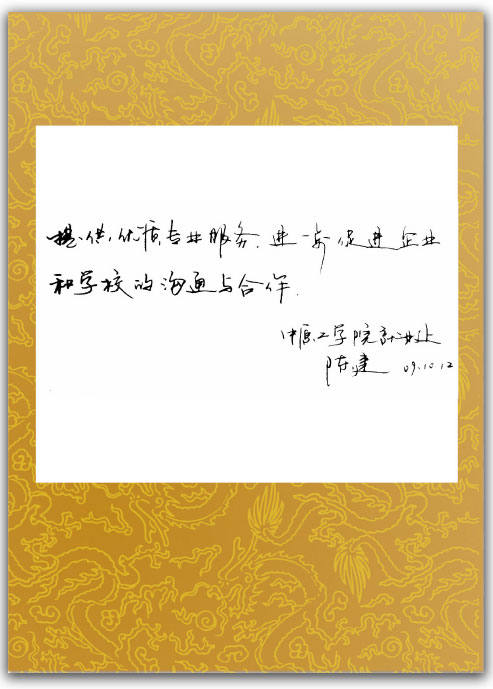 提供优质专业服务.进一步促进企业
和学校的沟通与合作.
中原工学院就业处
陈建 09.10.12